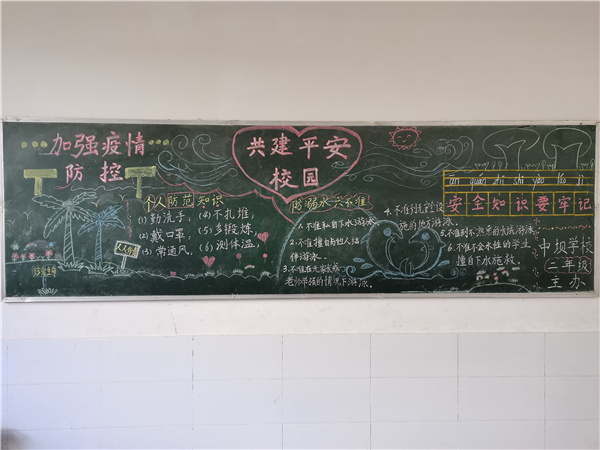 加强疫情
防控
个人防范知识
(1)勤洗手,
(2)戴口罩
(3)常通风,
(4)不扎堆,
(5)多锻炼,
(6)测体温,
人人有责
共建平安
校园
防溺水六不准
1.不准私自下水游泳
2.不准擅自与他人结
伴游泳.
3.不准在无家长或
老师带领的情况下游泳.
施的地方游泳.
6.不准不会水性的学生
擅自下水施救.
ān quán zhī shi yào láo jì
安全知识要牢记
中坝学校
二年级
主办